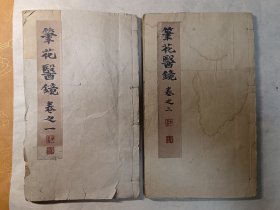 筆花醫鏡 卷之一
筆花醫鏡 卷之二